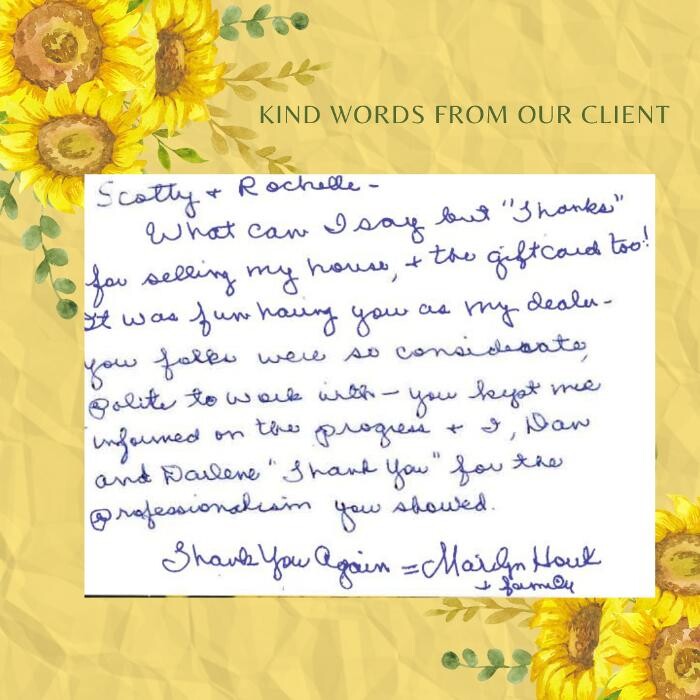 KIND WORDS FROM OUR CLIENT
Scotty + Rochelle -
What can I say but "Thanks"
for selling my house, + the giftcard too!
It was fun having you as my dealer-
you folks were so considerate,
polite to work with - you kept me
informed on the progress + I, Dan
and Darlene "Thank You" for the
professionalism you showed.
Thank You Again = Marilyn Houk
+ family